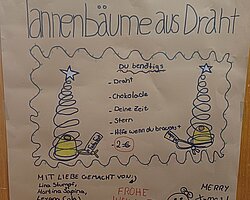 Tannenbäume aus Draht
Du benötigst
- Draht
- Chokolade
- Deine Zeit
- Stern
- Hilfe wenn du brauchst
- 2 €
MIT LIEBE GEMACHT VON:
Lina Stumpf,
Martina Sapina,
FROHE
MERRY